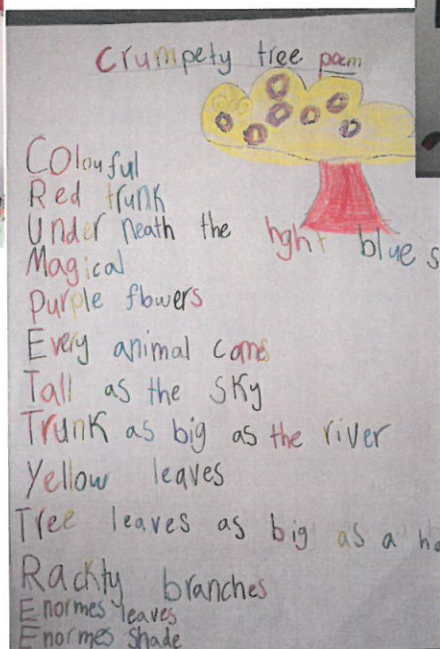 Crumpety tree poem
Colouful
Red trunk
Under neath the light blue
Magical
purple flowers
Every animal came
Tall as the sky
Trunk as big as the river
Yellow leaves
Tree leaves as big as a
Rackty branches
Enormes leaves
Enormes shade